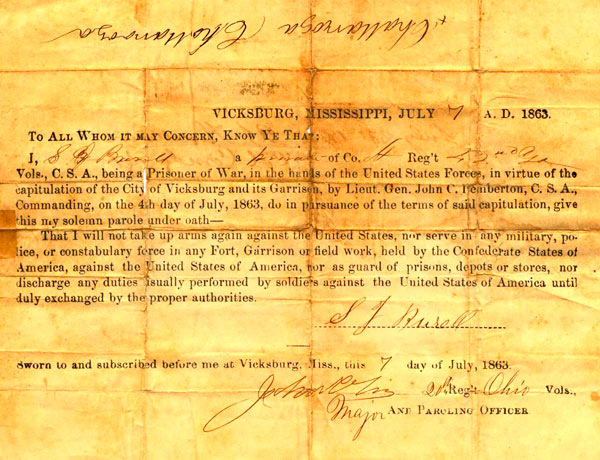 Chattanooga Chattanooga
VICKSBURG, MISSISSIPPI, JULY 7 A. D. 1863.
TO ALL WHOM IT MAY CONCERN, KNOW YE THAT:
I, S a private of Co. H Reg't 52nd Ga
Vols., C. S. A., being a Prisoner of War, in the hands of the United States Forces, in virtue of the
capitulation of the City of Vicksburg and its Garrison, by Lieut. Gen. John C. Pemberton, C. S. A.,
Commanding, on the 4th day of July, 1863, do in pursuance of the terms of said capitulation, give
this my solemn parole under oath—
That I will not take up arms again against the United States, nor serve in any military, po-
lice, or constabulary force in any Fort, Garrison or field work, held by the Confederate States of
America, against the United States of America, nor as guard of prisons, depots or stores, nor
discharge any duties usually performed by soldiers against the United States of America until
duly exchanged by the proper authorities.
S J
Sworn to and subscribed before me at Vicksburg, Miss., this 7 day of July, 1863.
John 20 Reg't Ohio Vols.,
Major AND PAROLING OFFICER